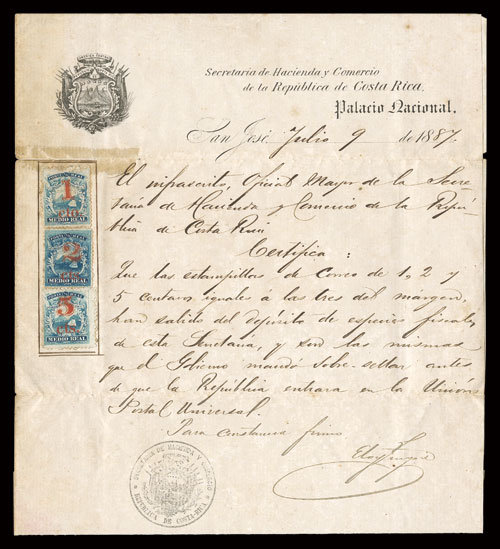 Secretaria de Hacienda y Comercio
de la República de Costa Rica.
Palacio Nacional.
San José, Julio 9 de 1887.
El infrascrito, Oficial Mayor de la Secre-
taria de Hacienda y Comercio de la Repú-
blica de Costa Rica
Certifica:
Que las estampillas de Correo de 1, 2 y
5 centavos iguales á las tres del margen,
han salido del depósito de especies fiscales
de esta Secretaria, y son las mismas
que el Gobierno mandó sobre-sellar antes
de que la República entrara en la Unión
Postal Universal.
Para constancia firmo
1
cto.
MEDIO REAL
2
cts.
MEDIO REAL
5
cts.
MEDIO REAL
SECRETARIA DE HACIENDA Y COMERCIO
REPUBLICA DE COSTA-RICA